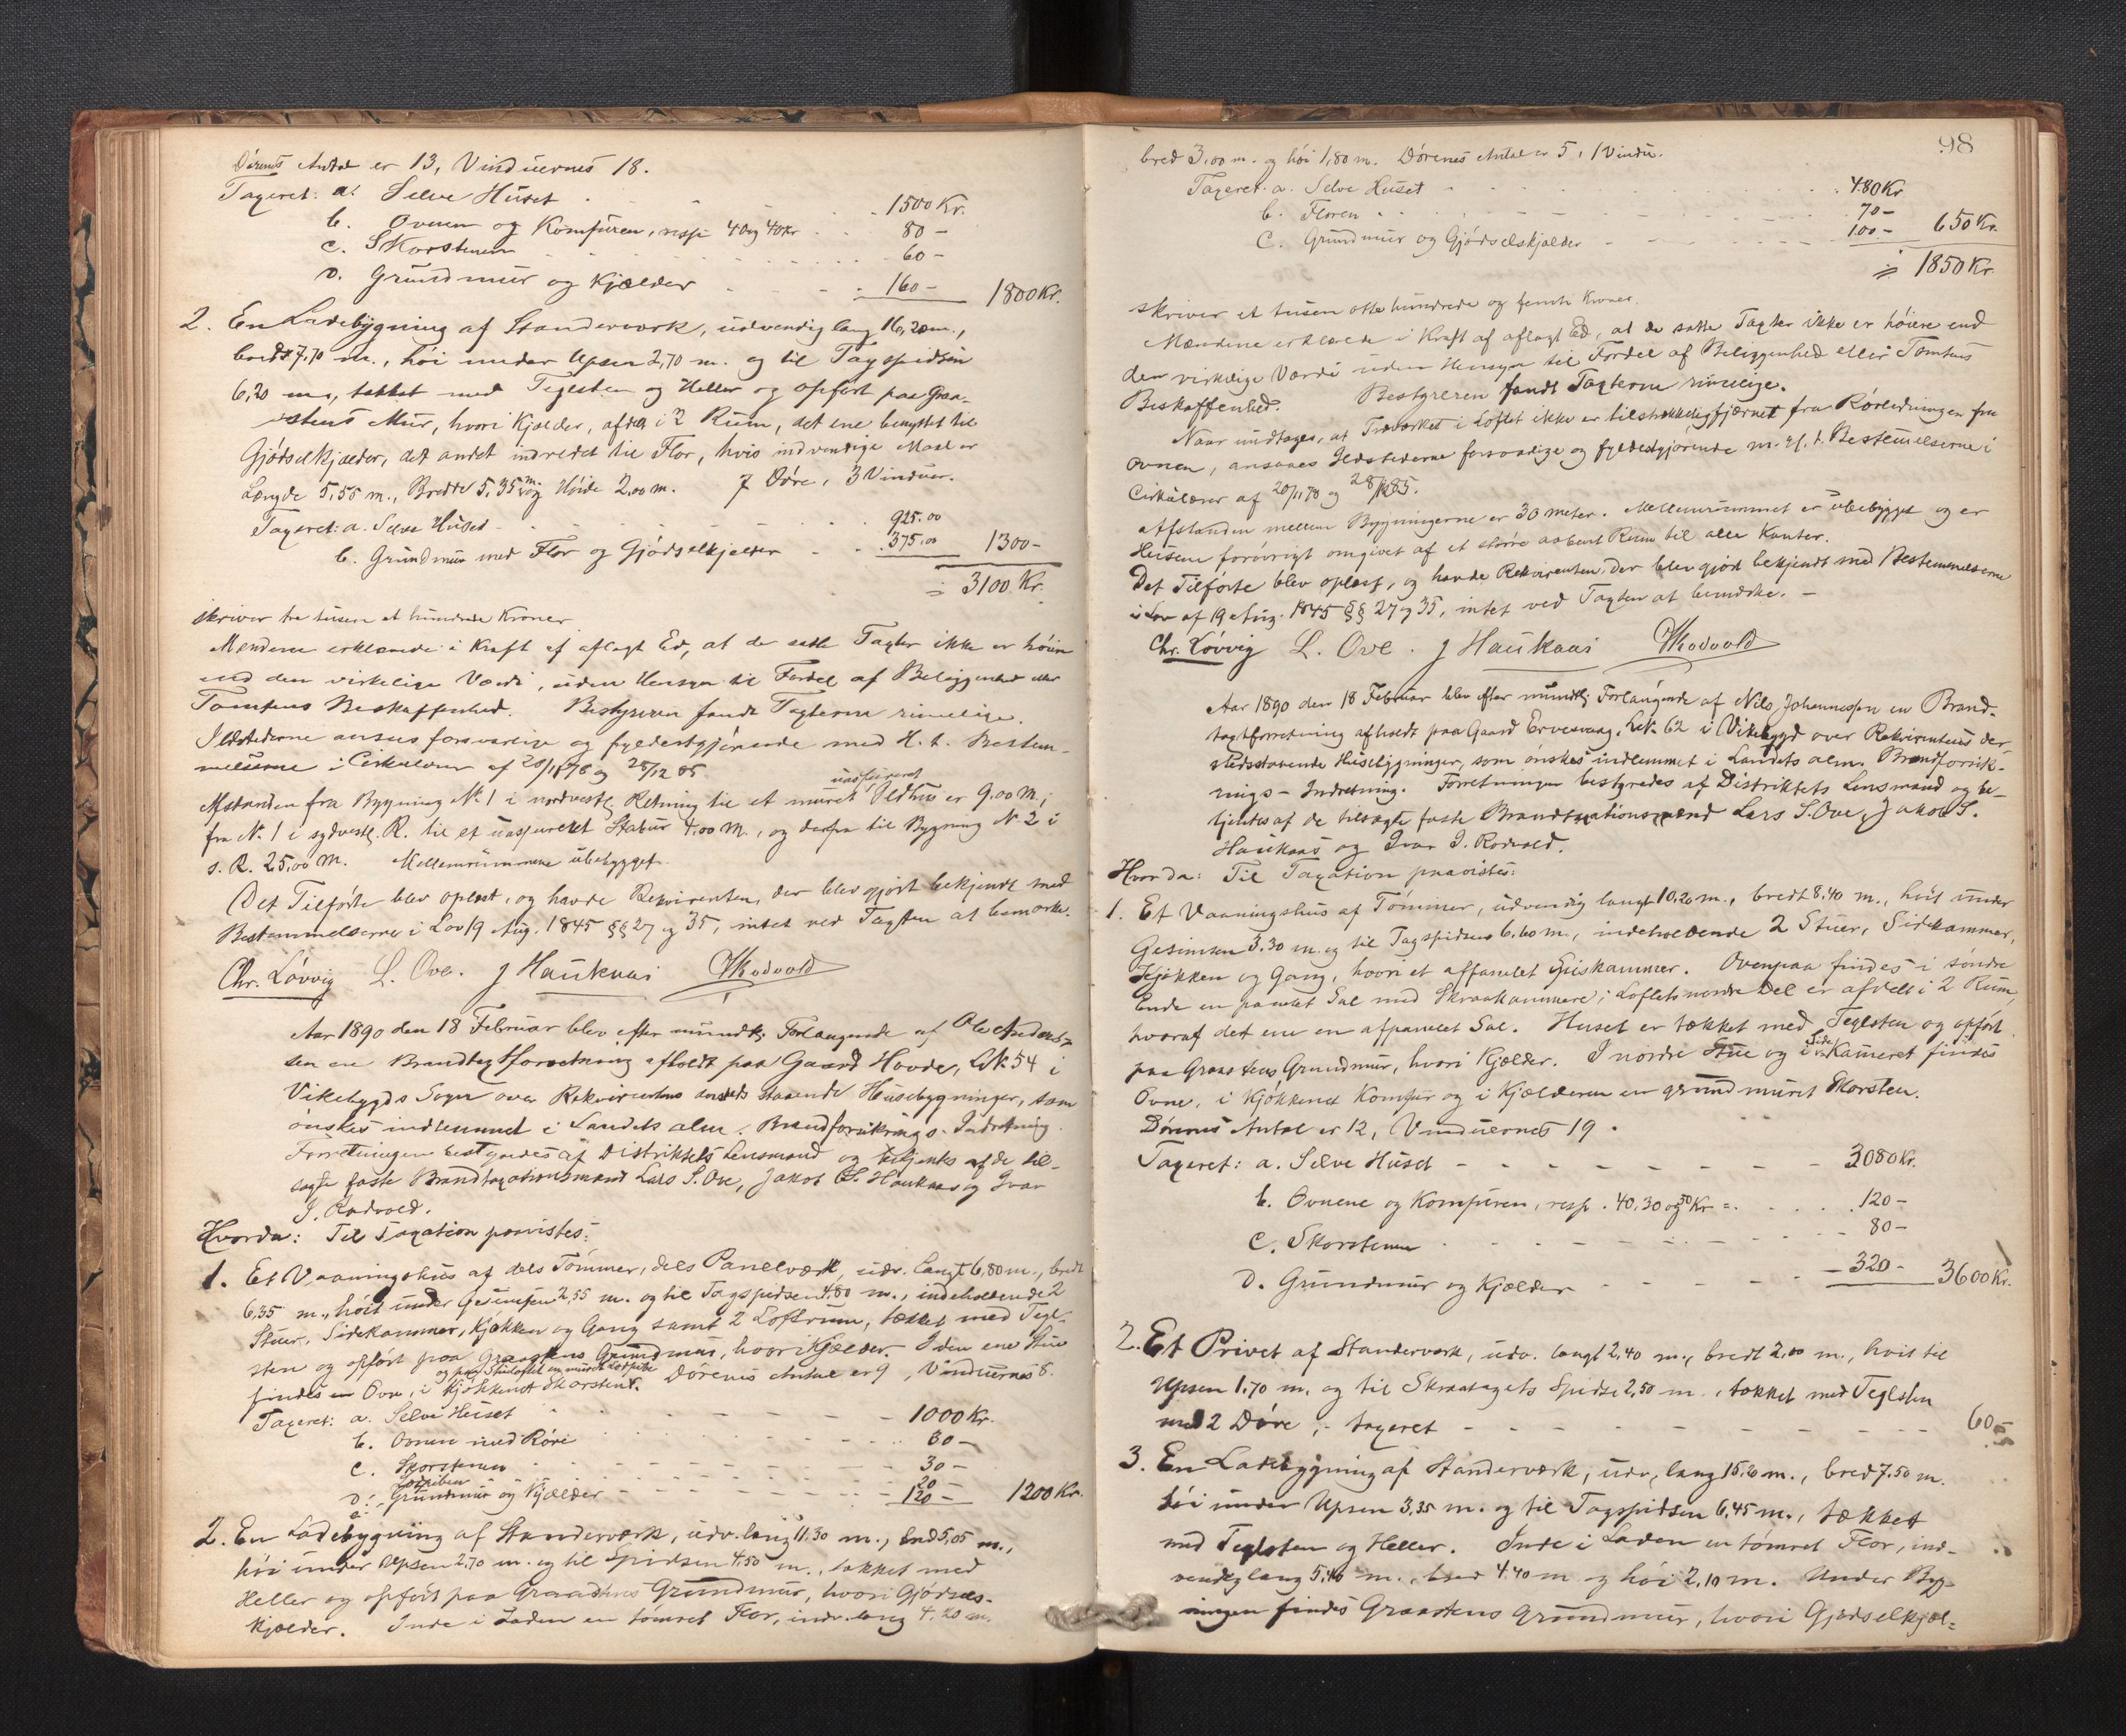 Dørenes Antal er 13, Vinduernes 18.
Taxeret: a. Selve Huset 1500 Kr.
b. Ovnen og Komfuren, resp. 40 og 40 Kr 80 -
c. Skorstenen 60 -
D. Grundmur og Kjælder 160 - 1800 Kr.
2. En Ladebygning af Standerværk, udvendig lang 16,20 m.,
bred 7,70 m., høi under Upsen 2,70 m. og til Tagspidsen
6,20 m., tækket med Teglsten og Heller og opført paa Graa-
stens Mur, hvori Kjælder, afdelt i 2 Rum, det ene benyttet til
Gjødselkjælder, det andet indredet til Flor, hvis indvendige Maal er
Længde 5,55 m., Bredde 5,35 m. og Høide 2,00 m. 7 Døre, 3 Vinduer.
Taxeret: a. Selve Huset 925.00
b. Grundmur med Flor og Gjødselkjelder 375.00 1300 -
= 3100 Kr.
skriver tre tusen et hundrede Kroner.
Mændene erklærede i Kraft af aflagt Ed, at de satte Taxter ikke er høiere
end den virkelige Værdi, uden Hensyn til Fordel af Beliggenhed eller
Tomtens Beskaffenhed. Bestyreren fandt Taxterne rimelige.
Ildstederne ansees forsvarlige og fyldestgjørende med H. t. Bestem-
melserne i Cirkulærer af 20/11 78 og 28/12 85.
Afstanden fra Bygning No. 1 i nordvestl. Retning til et uassureret muret Ildhus er 9.00 m;
fra No. 1 i sydvestl. R. til et uassureret Stabur 4.00 m., og derfra til Bygning No. 2 i
s. R. 25,00 m. Mellemrummene ubebygget.
Det Tilførte blev oplæst, og havde Rekvirenten, der blev gjort bekjendt med
Bestemmelserne i Lov 19 Aug. 1845 §§ 27 og 35, intet ved Taxten at bemærke.
Chr. Løvvig L. Ove. J Haukaas Rodvold
Aar 1890 den 18 Februar blev efter mundtl. Forlangende af Ole Anders-
sen en Brandtaxtforretning afholdt paa Gaard Hovde, LNo. 54 i
Vikebygds Sogn over Rekvirentens dersteds staaende Husebygninger, som
ønskes indlemmet i Landets alm. Brandforsikrings-Indretning.
Forretningen bestyredes af Distriktets Lensmand og betjentes af de til-
sagte faste Brandtaxationsmænd Lars S. Ove, Jakob S. Haukaas og Ivar
I. Rodvold.
Hvorda: Til Taxation paavistes:
1. Et Vaaningshus af dels Tømmer, dels Panelværk, udv. langt 6,80 m., bredt
6,35 m., høit under Gesimsen 2,55 m. og til Tagspidsen 4,80 m., indeholdende 2
Stuer, Sidekammer, Kjøkken og Gang samt 2 Loftsrum, tækket med Tegl-
sten og opført paa Graastens Grundmur, hvori Kjælder. I den ene Stue
findes en Ovn, i Kjøkkenet Skorsten og paa Stueloftet en muret Lodpibe. Dørenes Antal er 9, Vinduernes 8.
Taxeret: a. Selve Huset 1000 Kr.
b. Ovnen med Røre 30 -
c. Skorstenen 30 -
Lodpiben 20 -
D. Grundmur og Kjælder 120 - 1200 Kr.
2. En Ladebygning af Standerværk, udv. lang 11.30 m., bred 5,05 m.,
høi under Upsen 2,70 m. og til Spidsen 4,50 m., tækket med
Heller og opført paa Graastens Grundmur, hvori Gjødsels-
kjælder. Inde i Laden en tømret Flor, indv. lang 4,20 m.
98
bred 3,00 m. og høi 1,80 m. Dørenes Antal er 5, 1 Vindu.
Taxeret: a. Selve Huset 480 Kr
b. Floren 70 -
c. Grundmur og Gjødselskjælder 100 - 650 Kr.
= 1850 Kr.
skriver et tusen otte hundrede og femti Kroner.
Mændene erklærede i Kraft af aflagt Ed, at de satte Taxter ikke er høiere end
den virkelige Værdi uden Hensyn til Fordel af Beliggenhed eller Tomtens
Beskaffenhed. Bestyreren fandt Taxterne rimelige.
Naar undtages, at Træværket i Loftet ikke er tilstrækkelig fjærnet fra Rørledningen fra
Ovnen, ansaaes Ildstederne forsvarlige og fyldestgjørende m. H. t. Bestemmelserne i
Cirkulærer af 20/11 78 og 28/12 85.
Afstanden mellem Bygningerne er 30 meter. Mellemrummet er ubebygget og er
Husene forøvrigt omgivet af et større aabent Rum til alle Kanter.
Det Tilførte blev oplæst, og havde Rekvirenten, der blev gjort bekjendt med Bestemmelserne
i Lov af 19 Aug. 1845 §§ 27 og 35, intet ved Taxten at bemærke. -
Chr. Løvvig L. Ove. J Haukaas Rodvold
Aar 1890 den 18 Februar blev efter mundtl. Forlangende af Nils Johannessen en Brand-
taxtforretning afholdt paa Gaard Ervesvaag, LNo. 62 i Vikebygd over Rekvirentens der-
stedsstaaende Husebygninger, som ønskes indlemmet i Landets alm. Brandforsik-
rings-Indretning. Forretningen bestyredes af Distriktets Lensmand og be-
tjentes af de tilsagte faste Brandtaxationsmænd Lars S. Ove, Jakob S.
Haukaas og Ivar I. Rodvold.
Hvorda: Til Taxation paavistes:
1. Et Vaaningshus af Tømmer, udvendig langt 10.20 m., bredt 8.40 m., høit under
Gesimsen 3.30 m. og til Tagspidsen 6.60 m., indeholdende 2 Stuer, Sidekammer,
Kjøkken og Gang, hvori et afpanelet Spiskammer. Ovenpaa findes i søndre
Ende en panelet Sal med Skraakammere; Loftets nordre Del er afdelt i 2 Rum,
hvoraf det ene en afpanelet Sal. Huset er tækket med Teglsten og opført
paa Graastens Grundmur, hvori Kjælder. I nordre Stue og i Side Kameret findes
Ovne, i Kjøkkenet Komfur og i Kjælderen en grundmuret Skorsten.
Dørenes Antal er 12, Vinduernes 19.
Taxeret: a. Selve Huset 3080 Kr.
b. Ovnene og Komfuren, resp. 40.30 og 50 Kr = 120 -
c. Skorstenen 80 -
D. Grundmur og Kjælder 320 - 3600 Kr.
2. Et Privet af Standerværk, udv. langt 2,40 m., bredt 2,00 m., høit til
Upsen 1.70 m. og til Skraatagets Spidse 2,50 m., tækket med Teglsten
med 2 Døre; - taxeret 60 -
3. En Ladebygning af Standerværk, udv. lang 15,20 m., bred 7.50 m.
høi under Upsen 3,35 m. og til Tagspidsen 6,45 m., tækket
med Teglsten og Heller. Inde i Laden en tømret Flor, ind-
vendig lang 5,40 m., bred 4.40 m og høi 2,10 m. Under Byg-
ningen findes Graastens Grundmur, hvori Gjødselkjæl-